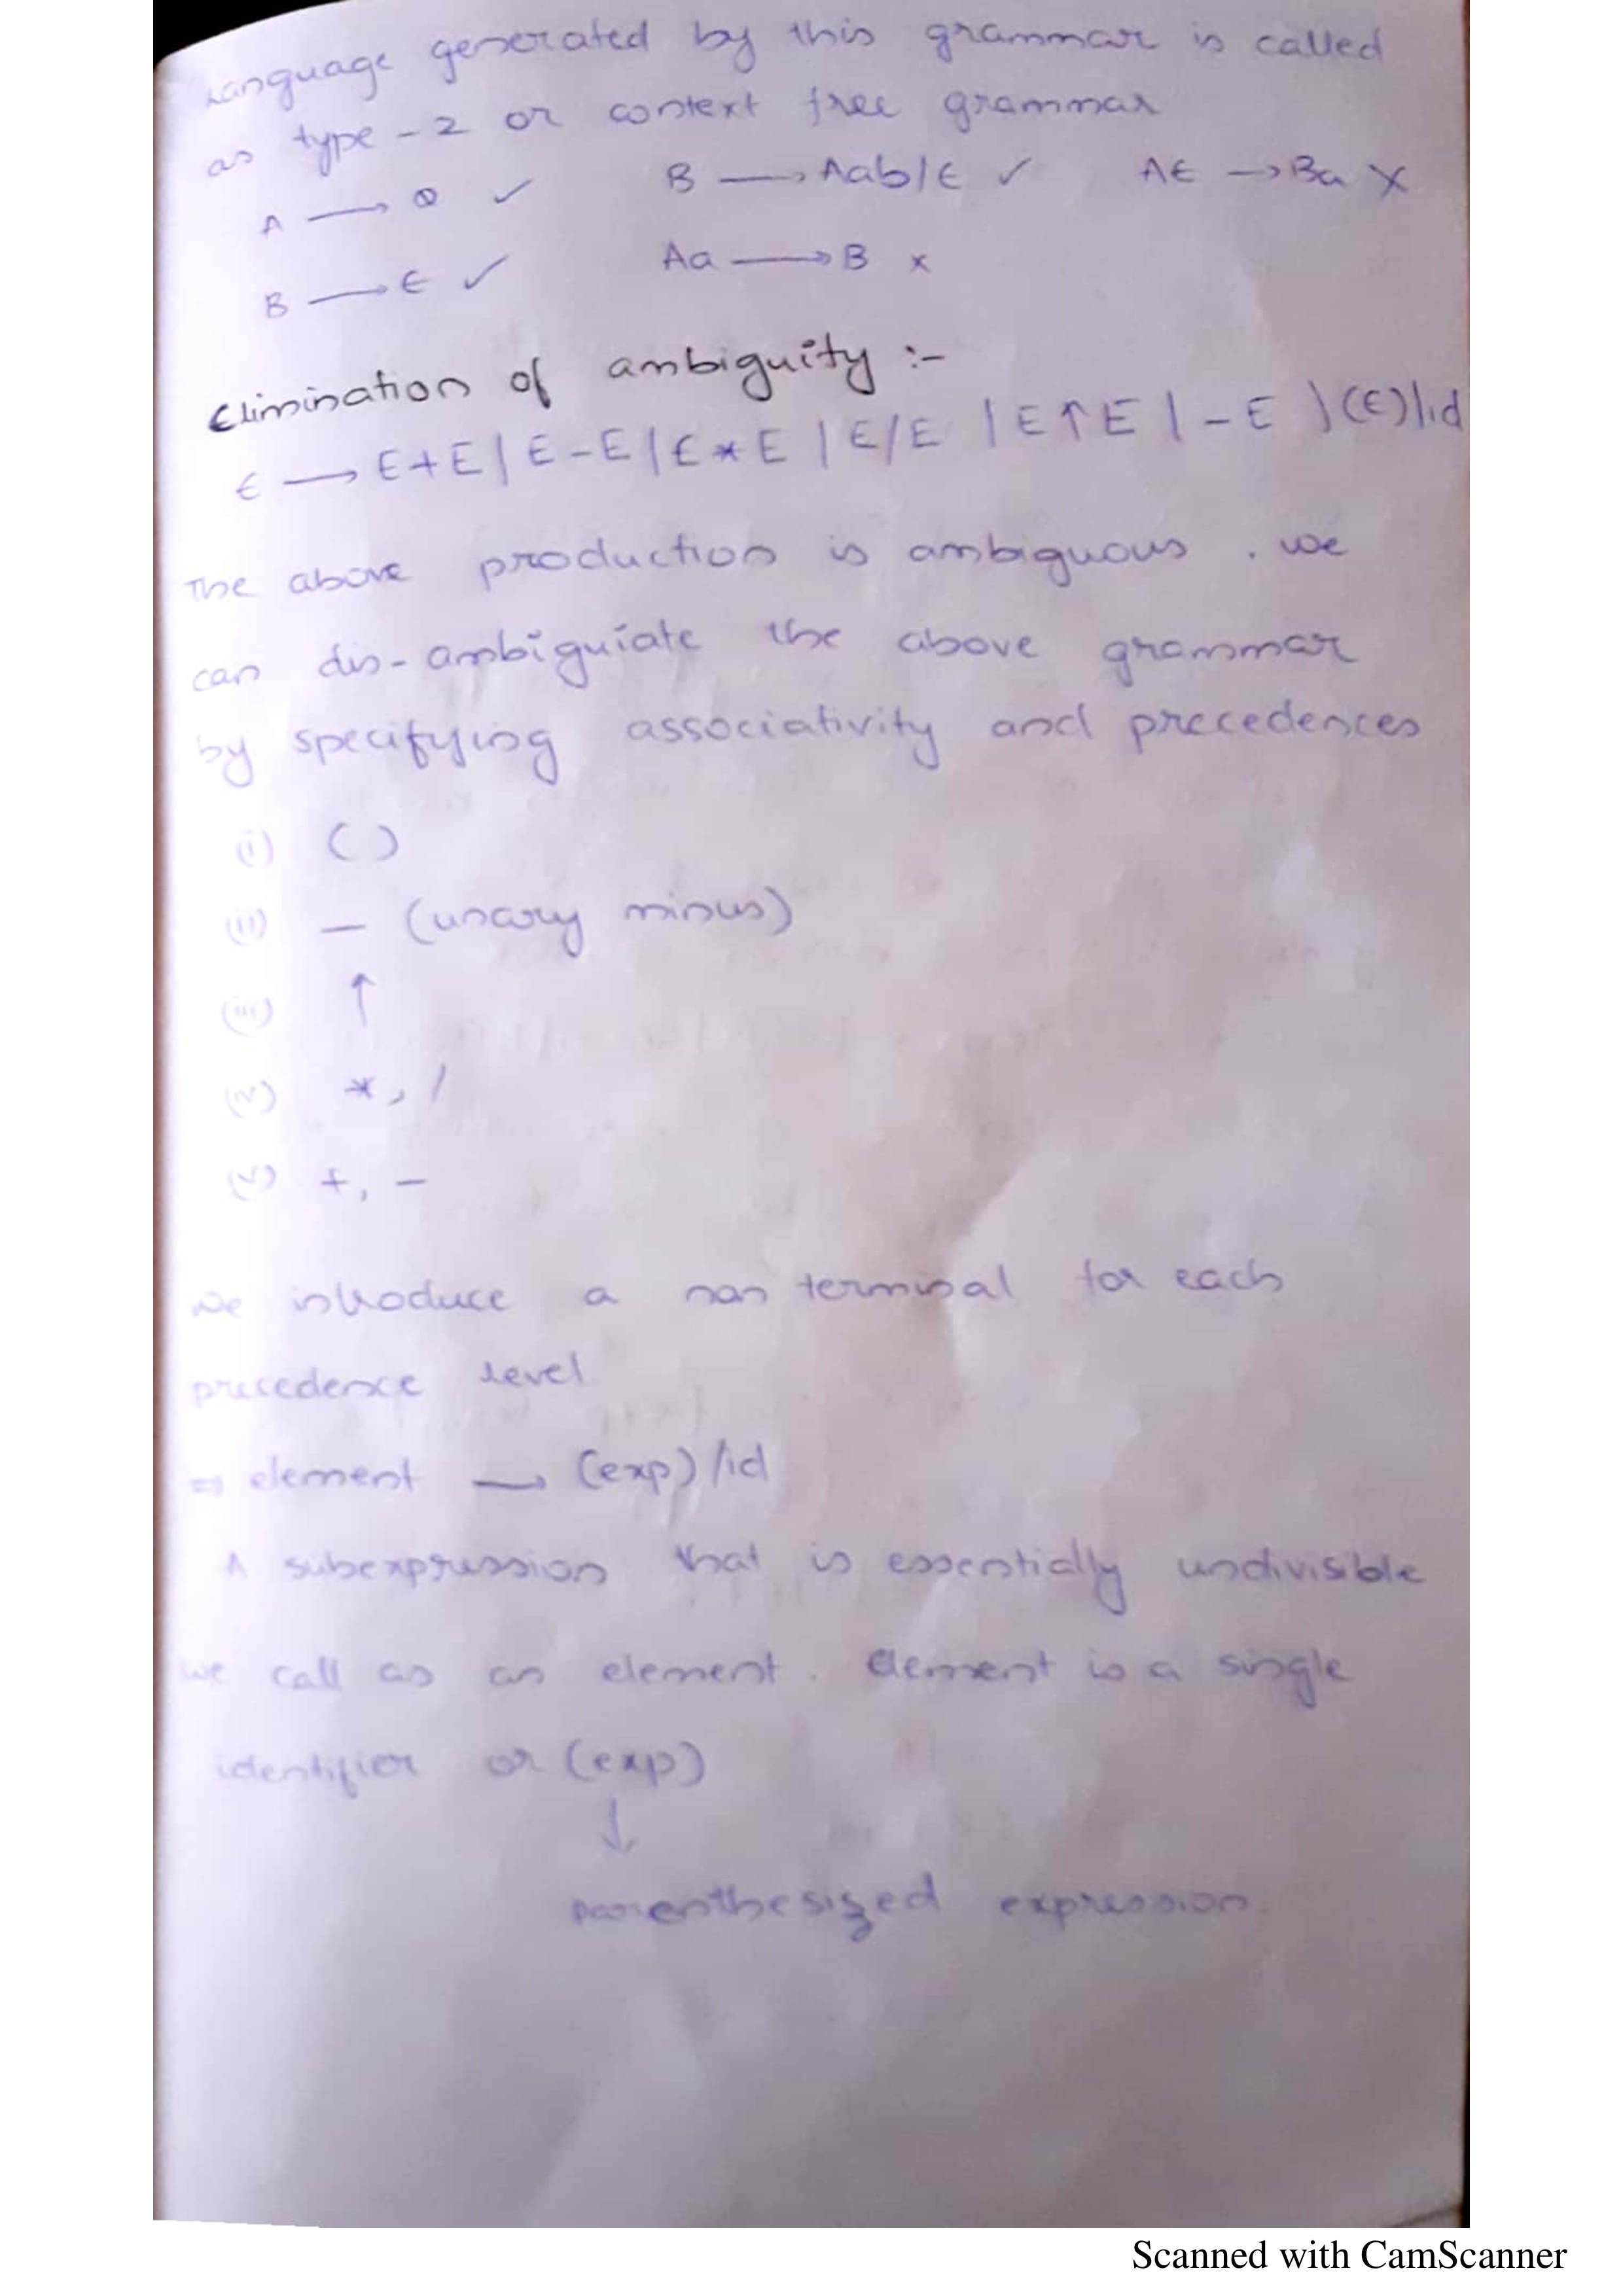 Language generated by this grammar is called
as type-2 or context free grammar
A → a ✓ B → Aab/ε ✓ Aε → Ba ×
B → ε ✓ Aa → B ×
Elimination of ambiguity :-
E → E+E | E-E | E*E | E/E | E↑E | -E | (E)/id
The above production is ambiguous. we
can dis-ambiguiate the above grammar
by specifying associativity and precedences
(i) ()
(ii) — (unary minus)
(iii) ↑
(iv) *, /
(v) +, -
we introduce a non terminal for each
precedence level
⇒ element → (exp)/id
A subexpression that is essentially undivisible
we call as an element. Element is a single
identifier or (exp)
↓
parenthesized expression
Scanned with CamScanner